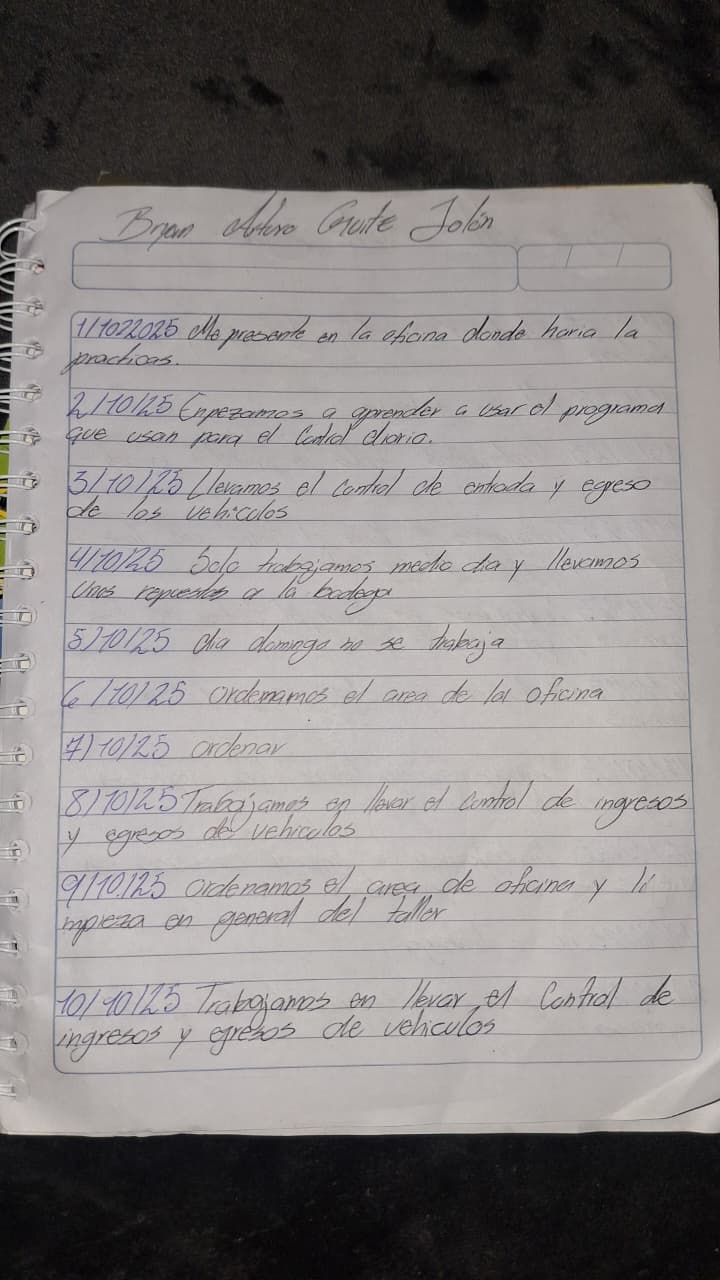 Bryan Arturo Guite Jolón
1/1022025 Me presente en la oficina donde haria la
practicas.
2/10/25 Enpezamos a aprender a usar el programa
que usan para el Control diario.
3/10/25 Llevamos el control de entrada y egreso
de los vehiculos
4/10/25 Solo trabajamos medio dia y llevamos
Unos repuestos a la bodega
5/10/25 dia domingo no se trabaja
6/10/25 ordenamos el area de la oficina
7/10/25 ordenar
8/10/25 Trabajamos en llevar el control de ingresos
y egresos de vehiculos
9/10/25 ordenamos el area de oficina y li
mpieza en general del taller
10/10/25 Trabajamos en llevar el Control de
ingresos y egresos de vehiculos